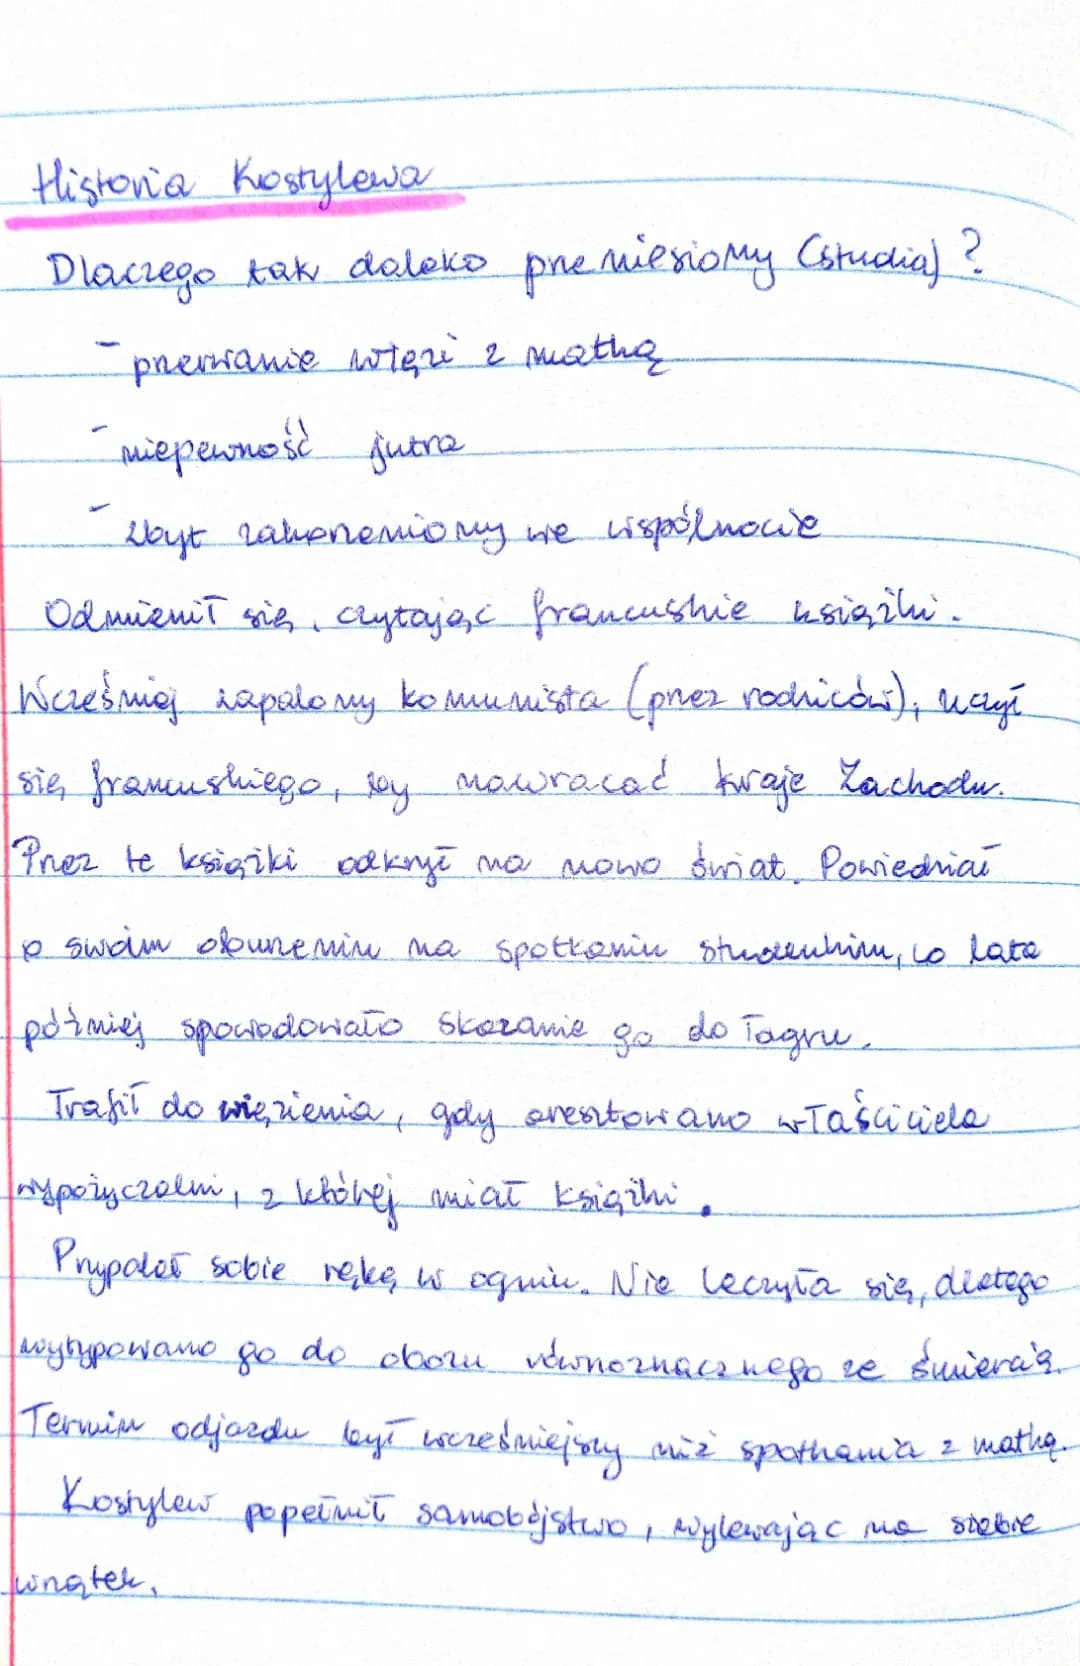 Historia Kostylewa
Dlaczego tak daleko przeniesiony (studia)?
- przerwanie więzi z matką
- niepewność jutra
- zbyt zakorzeniony we wspólnocie
Odmienił się, czytając francuskie książki.
Wcześniej zapalony komunista (przez rodziców), uczył
się francuskiego, by nawracać kraje Zachodu.
Przez te książki odkrył na nowo świat. Powiedział
o swoim oburzeniu na spotkaniu studenckim, co lata
później spowodowało skazanie go do łagru.
Trafił do więzienia, gdy aresztowano właściciela
wypożyczalni, z której miał książki.
Przypalał sobie rękę w ogniu. Nie leczyła się, dlatego
wytypowano go do obozu równoznacznego ze śmiercią.
Termin odjazdu był wcześniejszy niż spotkania z matką.
Kostylew popełnił samobójstwo, wylewając na siebie
wrzątek.